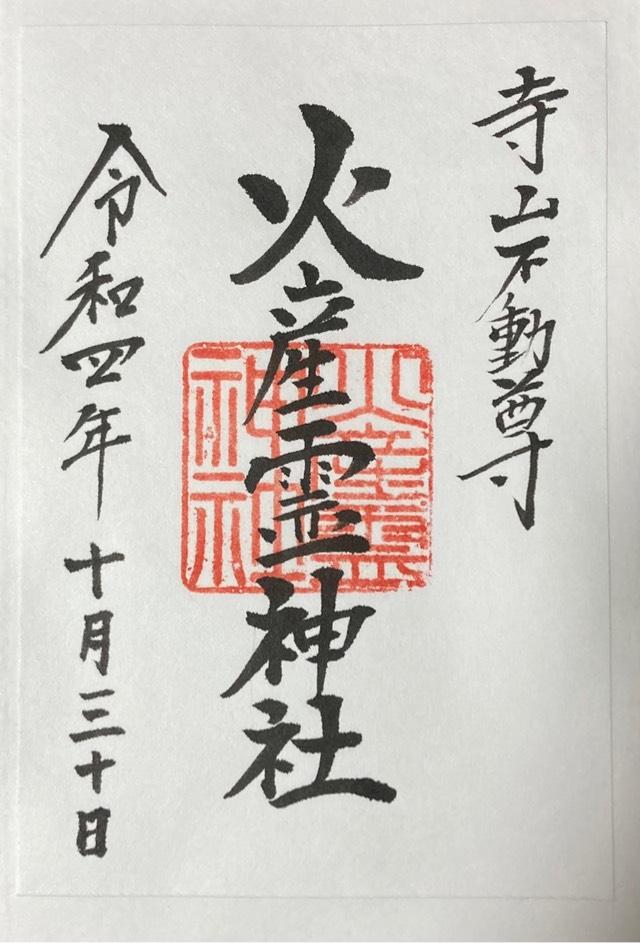 寺山不動尊
火産霊神社
火産霊神社
令和四年十月三十日